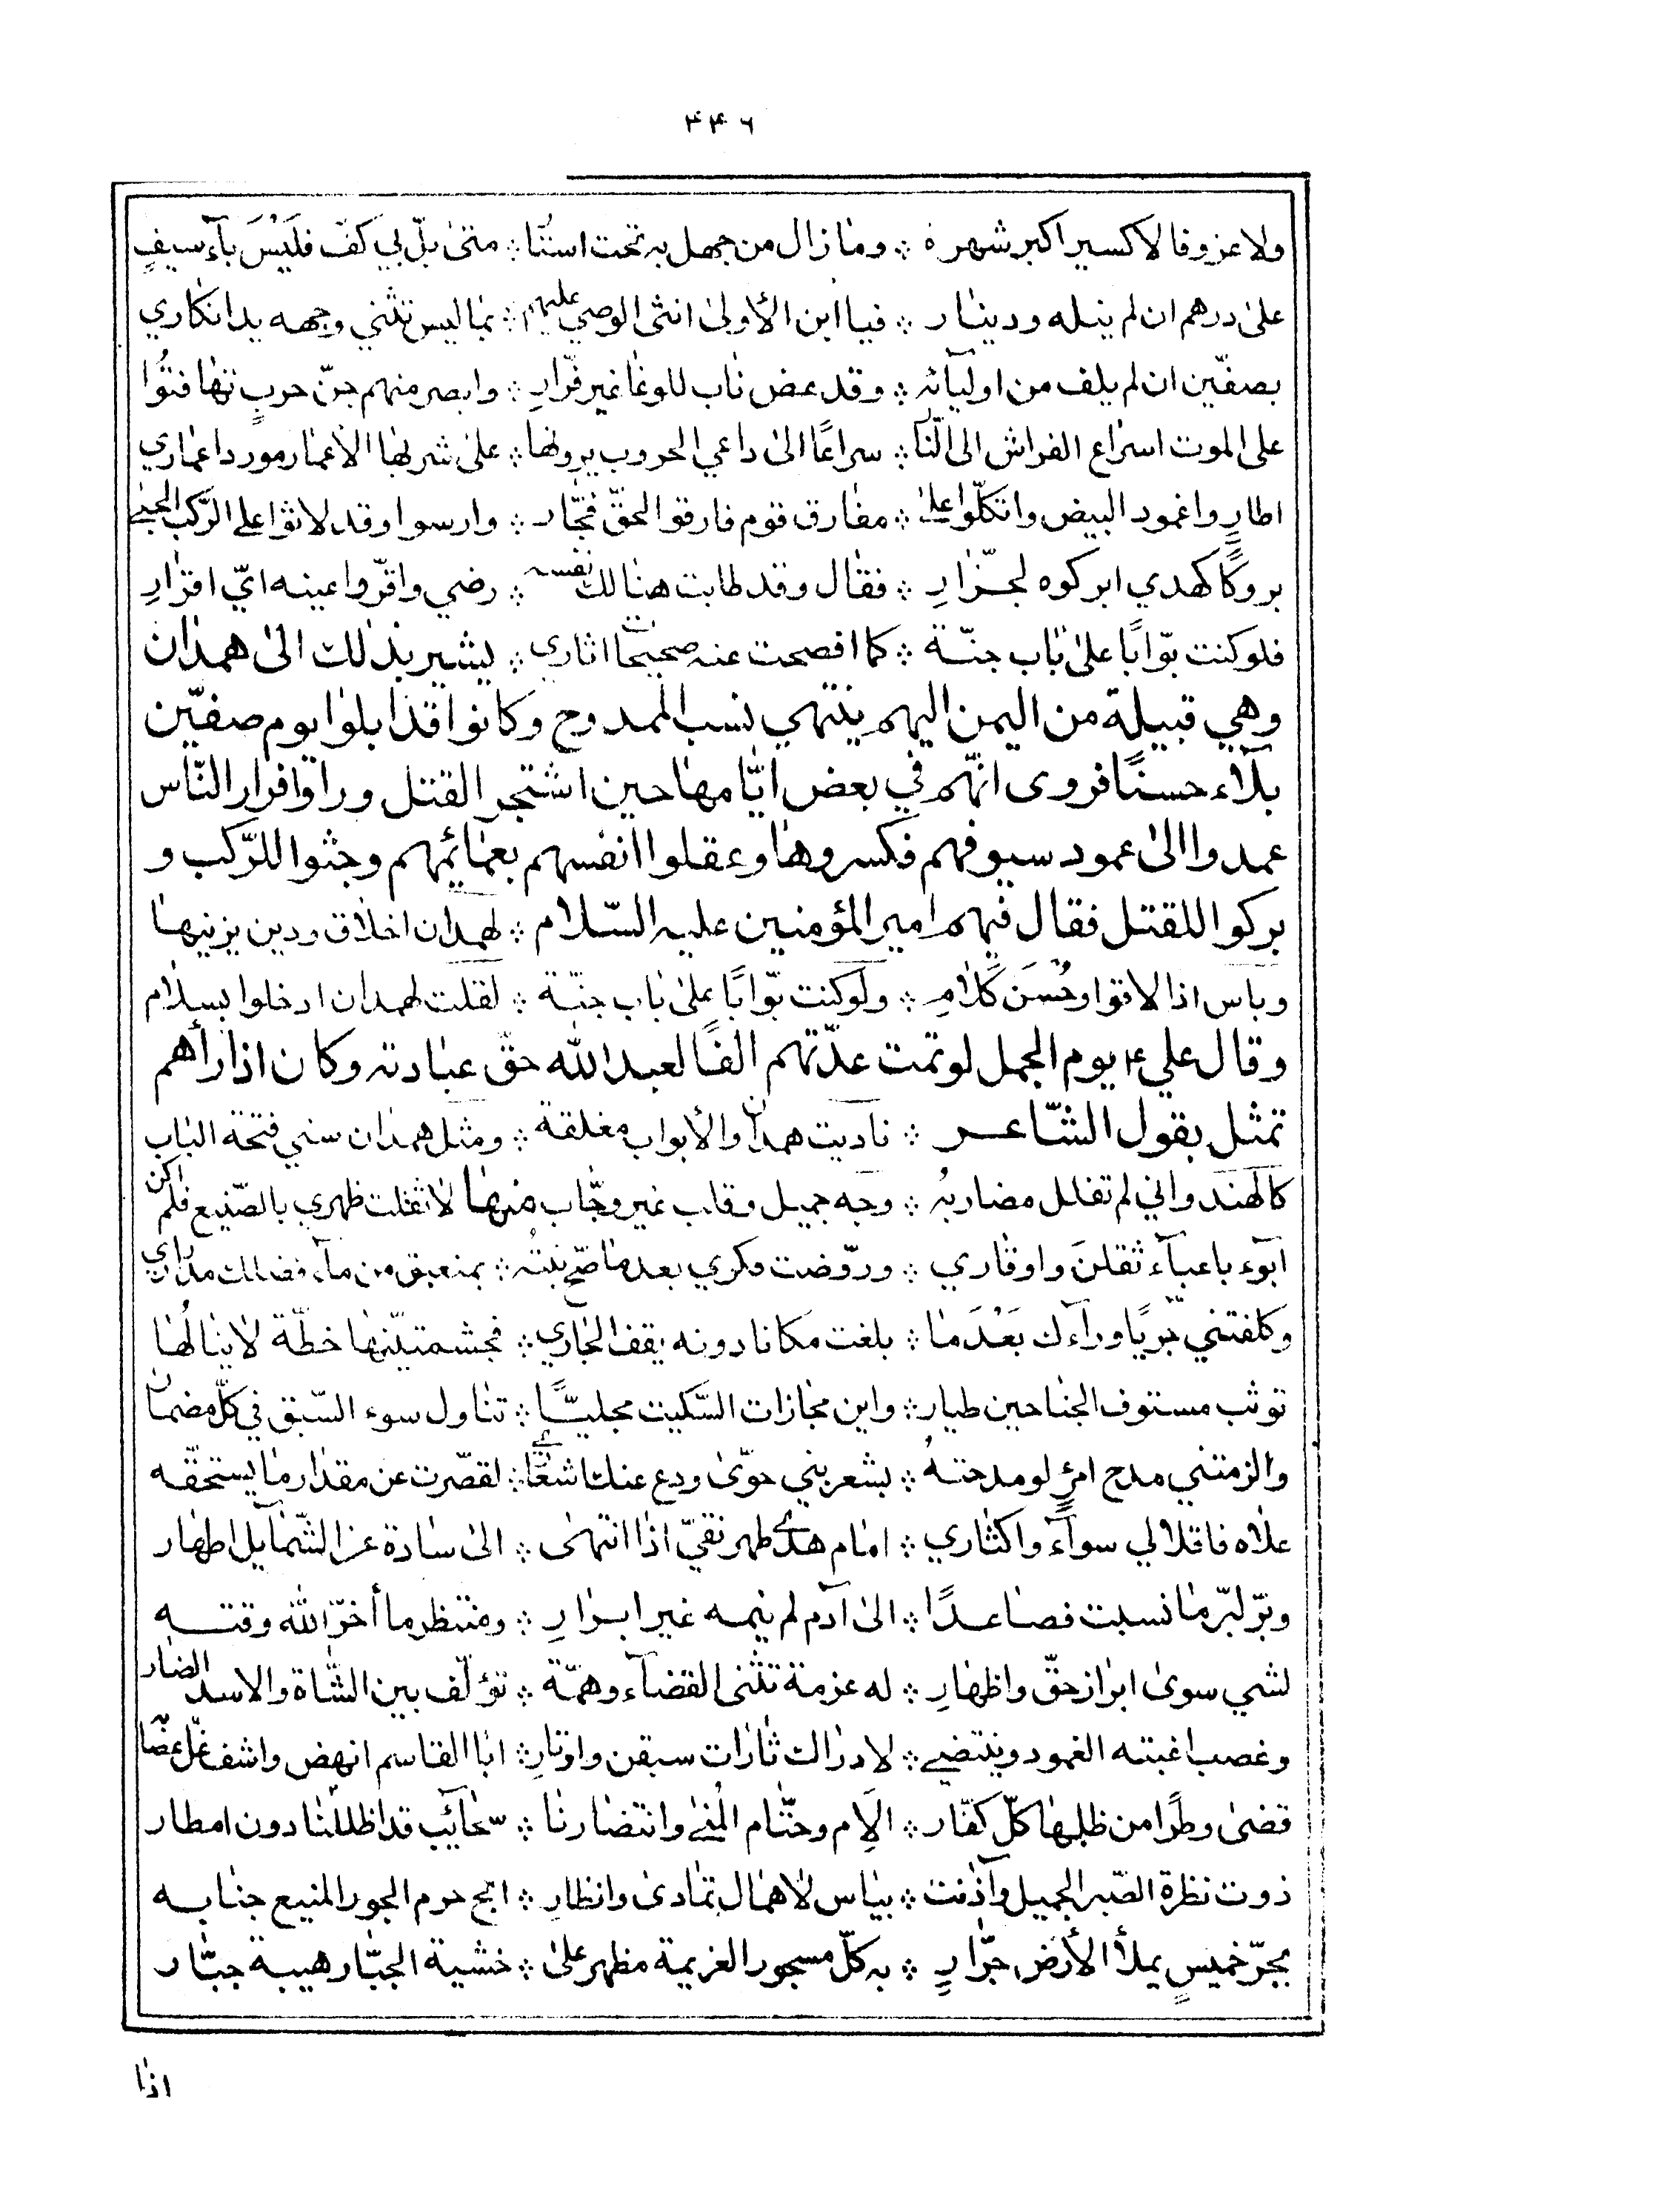 ٣٤٦
ولا عزوفا لاكسير اكبر شهرة ፨ وما زال من جهل به تحت استنا ፨ متى بلّ بي كفّ فليس بآء سيفٍ
على درهم ان لم ينله ودينار ፨ فيا ابن الأولى انثى الوصي عليهم ፨ بما ليس تثني وجهه يد انكاري
بصفّين ان لم يلف من اوليائه ፨ وقد عض ناب للوغا غير فرّارِ ፨ وابصر منهم جنّ حربٍ تهافتُوا
على الموت اسراع الفراش الى النا ፨ سراعًا الى داعي الحروب يرونها ፨ على شربها الأعمار مورد اعماري
اطارِوا غمود البيض واتكلّوا على ፨ مفارق قوم فارقوا الحقّ فجّار ፨ وارسوا وقد لاثوا على الرّكب الحبى
بروكًا كهدي ابركوه لجزّارِ ፨ فقال وقد طابت هنالك نفسه ፨ رضي واقرّوا عينه ايّ اقرارِ
فلو كنت بوّابًا على باب جنّة ፨ كما افصحت عنه صحيحات اثاري ፨ يشير بذلك الى همدان
وهي قبيلة من اليمن اليهم ينتهي نسب الممدوح وكانوا قد ابلوا يوم صفّين
بلآء حسنًا فروى انّهم في بعض ايّامها حين اشتجر القتل وراوا فرار النّاس
عمدوا الى عمود سيوفهم فكسروها وعقلوا انفسهم بعمائمهم وجثوا للرّكب و
بركوا للقتل فقال فيهم امير المؤمنين عليه السّلام ፨ لهمدان اخلاق ودين يزينها
وباس اذا لاقوا وحُسن كلامِ ፨ ولو كنت بوّابًا على باب جنّة ፨ لقلت لهمدان ادخلوا بسلام
وقال علي ع يوم الجمل لو تمت عدّتهم الفًا لعبد الله حقّ عبادته وكان اذا رأهم
تمثل بقول الشّاعر ፨ ناديت همدان والأبواب مغلقة ፨ ومثل همدان سني فتحة الباب
كالهندواني لم تفلل مضاربهُ ፨ وجه جميل وقلب غير وجّاب منها لاثقلت ظهري بالصّنيع فلم اكن
أبوء باعبآء ثقلنَ واوقاري ፨ وروّضت فكري بعد ما صّح نبتُه ፨ بمنعبق من مآء فضلك مدراري
وكلفتني جريًا ورآءك بَعْدَ ما ፨ بلغت مكانا دونه يقف الجاري ፨ فجشمتينها خطّة لا ينالُها
توثب مستوف الجناحين طيار ፨ واين مجازات السّكيت مجليًّا ፨ تناول سوء السّبق في كلّ مضمار
والزمتني مدح امرٍئ لو مدحتهُ ፨ بشعر بني حوّى ودع عنك اشعّا ፨ لقصّرت عن مقدار ما يستحقّه
علاه فاقلالي سوآءٌ واكثاري ፨ امام هدى طهر نقيّ اذا انتهى ፨ الى سادة عز الشّمآيل اطهار
وبرّ لبرّ ما نسبت فصاعدًا ፨ الى آدم لم ينمه غير ابرارِ ፨ ومنتظر ما أخرّ الله وقته
لشي سوى ابراز حقّ واظهارِ ፨ له عزمة تثنى القضآء وهمّة ፨ تؤلّف بين الشّاة والاسد الضار
وغصب اغبته الغمود وينتضي ፨ لادراك ثارات سبقن واوتارِ ፨ ابا القاسم انهض واشف غلّ عضّا
قضى وطرًا من ظلمها كلّ كفّار ፨ الام وحتّام المُنى وانتضارنا ፨ سحآئب قد اظللننا دون امطار
ذوت نظرة الصّبر الجميل وآذنت ፨ بياس لاهمال تمادى وانظارِ ፨ ابح حرم الجور المنيع جنابه
بجرّ خميسٍ يملأ الأرض جرّارِ ፨ به كلّ مسجور العزيمة مظهر على ፨ خشية الجبّار هيبة جبّار
اذا